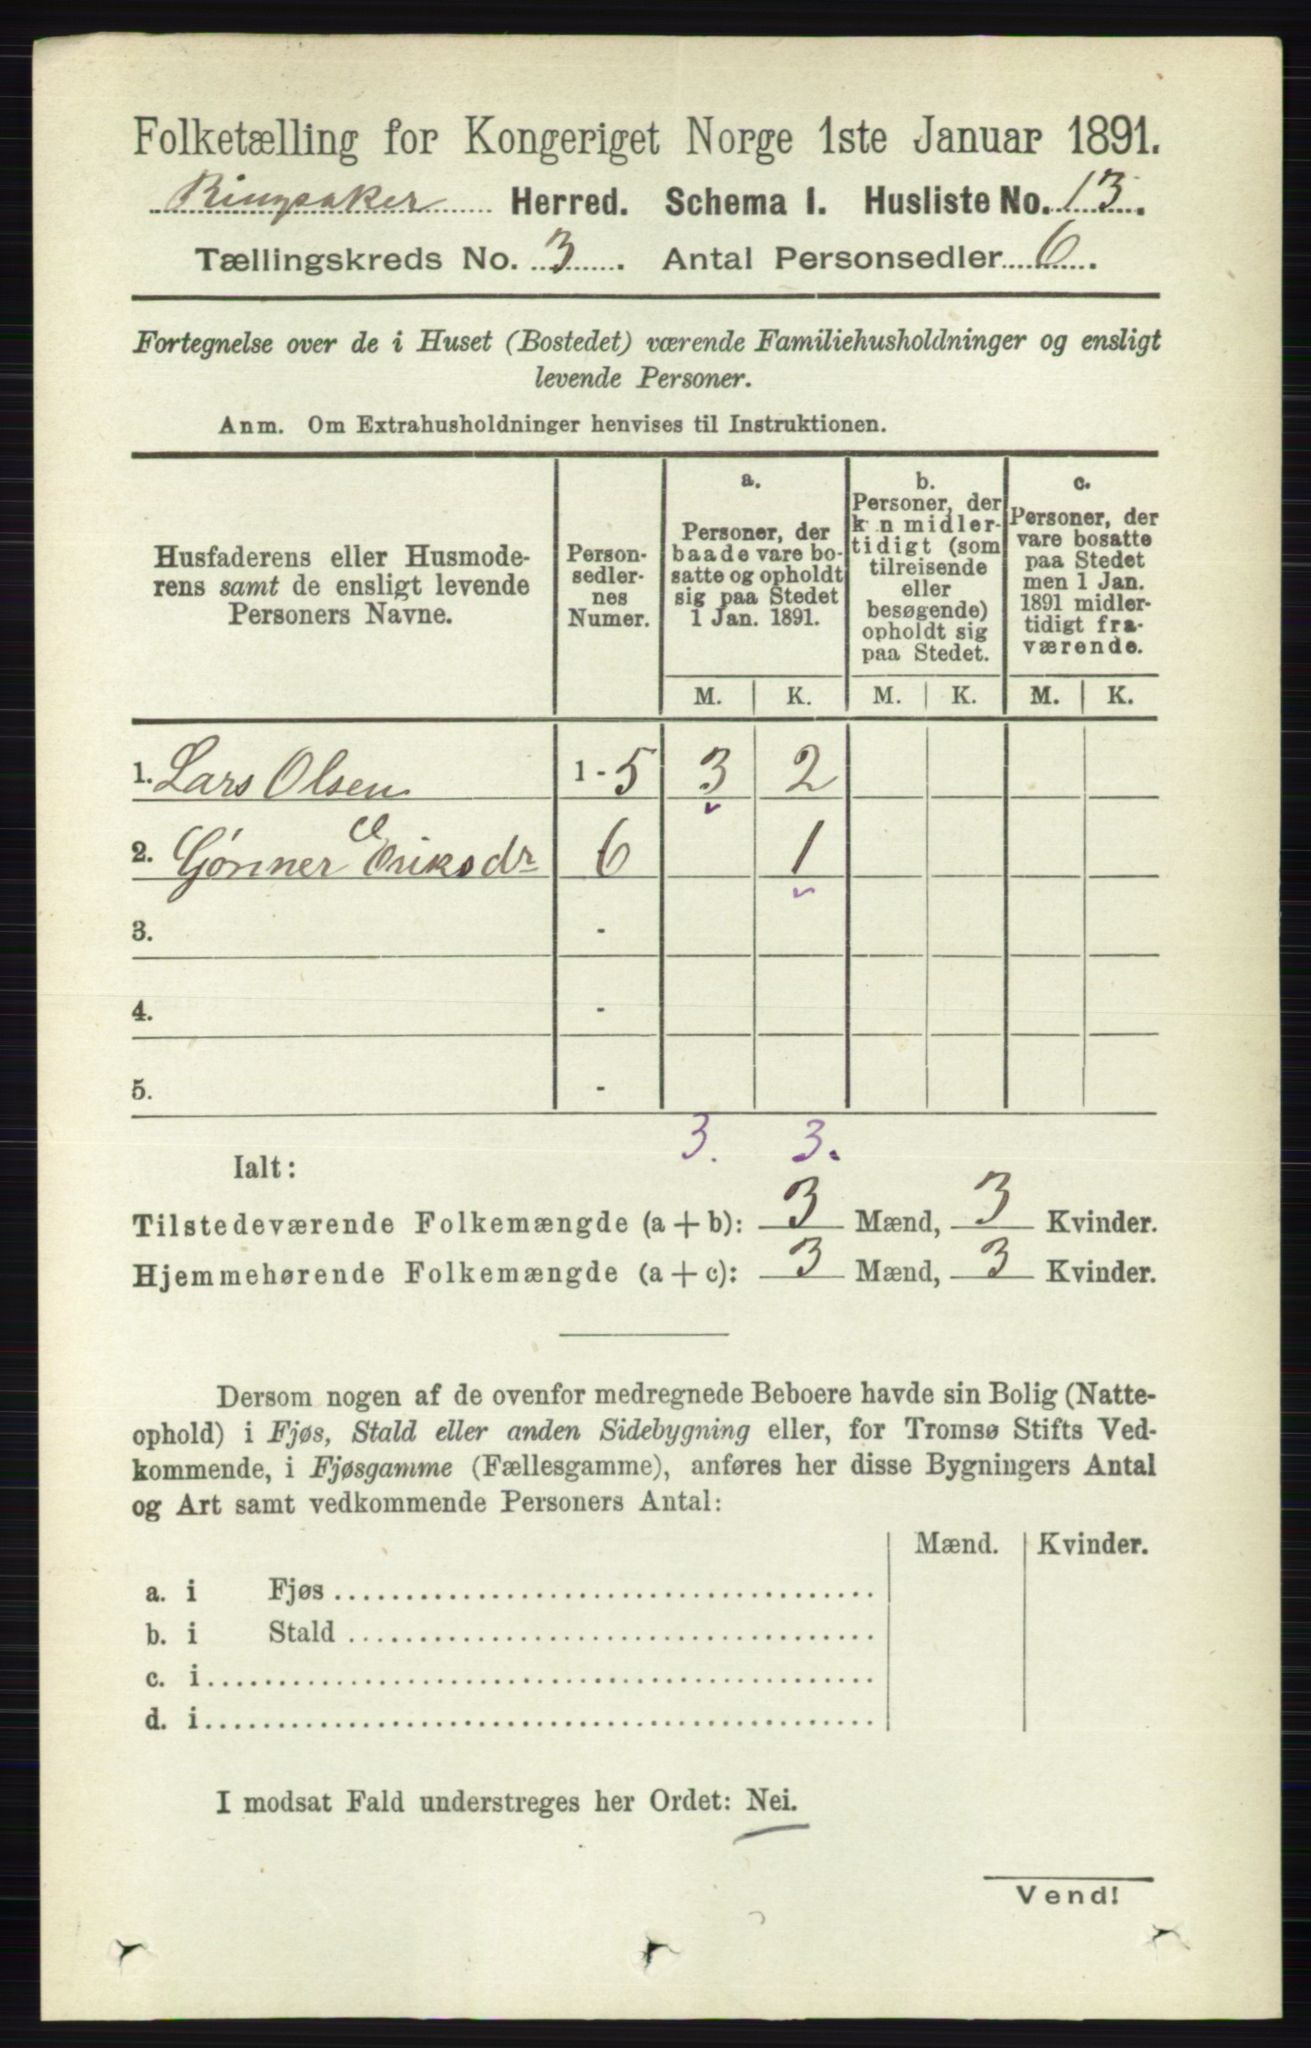 Folketælling for Kongeriget Norge 1ste Januar 1891.
Ringsaker Herred. Schema I. Husliste No. 13.
Tællingskreds No. 3. Antal Personsedler 6.
Fortegnelse over de i Huset (Bostedet) værende Familiehusholdninger og ensligt
levende Personer.
Anm. Om Extrahusholdninger henvises til Instruktionen.
Husfaderens eller Husmode-
rens samt de ensligt levende
Personers Navne.
Person-
sedler-
nes
Numer.
a.
Personer, der
baade vare bo-
satte og opholdt
sig paa Stedet
1 Jan. 1891.
b.
Personer, der
kun midler-
tidigt (som
tilreisende
eller
besøgende)
opholdt sig
paa Stedet.
c.
Personer, der
vare bosatte
paa Stedet
men 1 Jan.
1891 midler-
tidigt fra-
værende.
M. K. M. K. M. K.
1. Lars Olsen 1 - 5 3 2
2. Gønner Eriksdr 6 1
3. -
4. -
5. -
3. 3.
Ialt:
Tilstedeværende Folkemængde (a + b): 3 Mænd, 3 Kvinder.
Hjemmehørende Folkemængde (a + c): 3 Mænd, 3 Kvinder.
Dersom nogen af de ovenfor medregnede Beboere havde sin Bolig (Natte-
ophold) i Fjøs, Stald eller anden Sidebygning eller, for Tromsø Stifts Ved-
kommende, i Fjøsgamme (Fællesgamme), anføres her disse Bygningers Antal
og Art samt vedkommende Personers Antal:
Mænd. Kvinder.
a. i Fjøs
b. i Stald
c. i
d. i
I modsat Fald understreges her Ordet: Nei.
Vend!